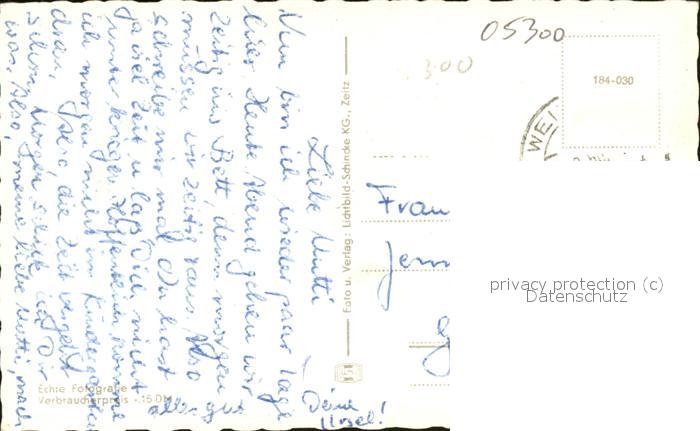 05300
300
184-030
WEI
Liebe Mutti
Nun bin ich wieder paar Tage
hier. Heute Abend gehen wir
zeitig ins Bett, denn morgen
müssen wir zeitig raus. Also
schreibe mir mal. Du hast
ja viel Zeit u. laß Dich nicht
unter kriegen. Hoffentlich komme
ich morgen nicht im Kindergarten
dran, die Zeit vergeht
schon. Morgen schick ich Dir
was. Also, meine liebe Mutti, mach
alles gut
Deine
Ursel!
Foto u. Verlag: Lichtbild-Schincke KG., Zeitz
Frau
Jenn
Echte Fotografie
Verbraucherpreis -.15 DM
privacy protection (c)
Datenschutz